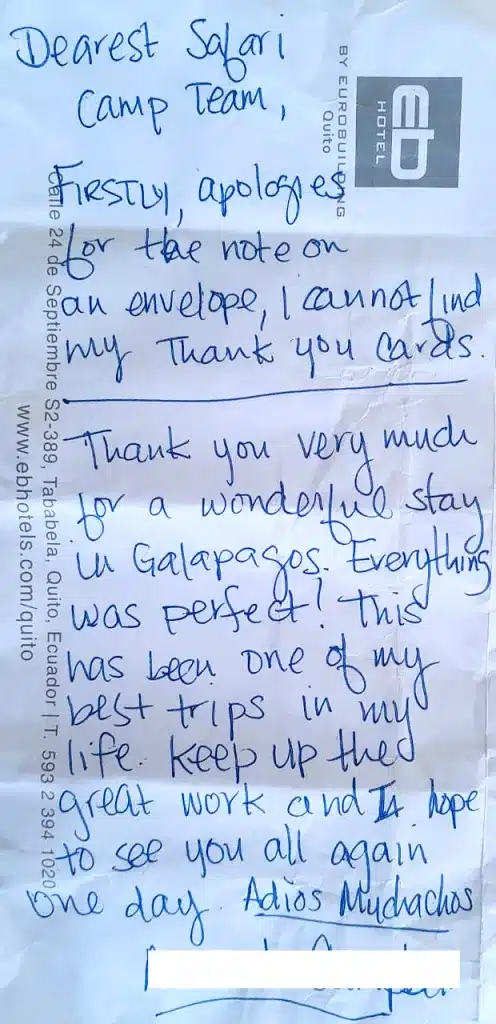 Dearest Safari
Camp Team,
FIRSTLY, apologies
for the note on
an envelope, I cannot find
my Thank you cards.
Thank you very much
for a wonderful stay
in Galapagos. Everything
was perfect! This
has been one of my
best trips in my
life. Keep up the
great work and I hope
to see you all again
one day. Adios Muchachos
eb
HOTEL
BY EUROBUILDING
Quito
Calle 24 de Septiembre S2-389, Tababela, Quito, Ecuador | T. 593 2 394 1020
www.ebhotels.com/quito